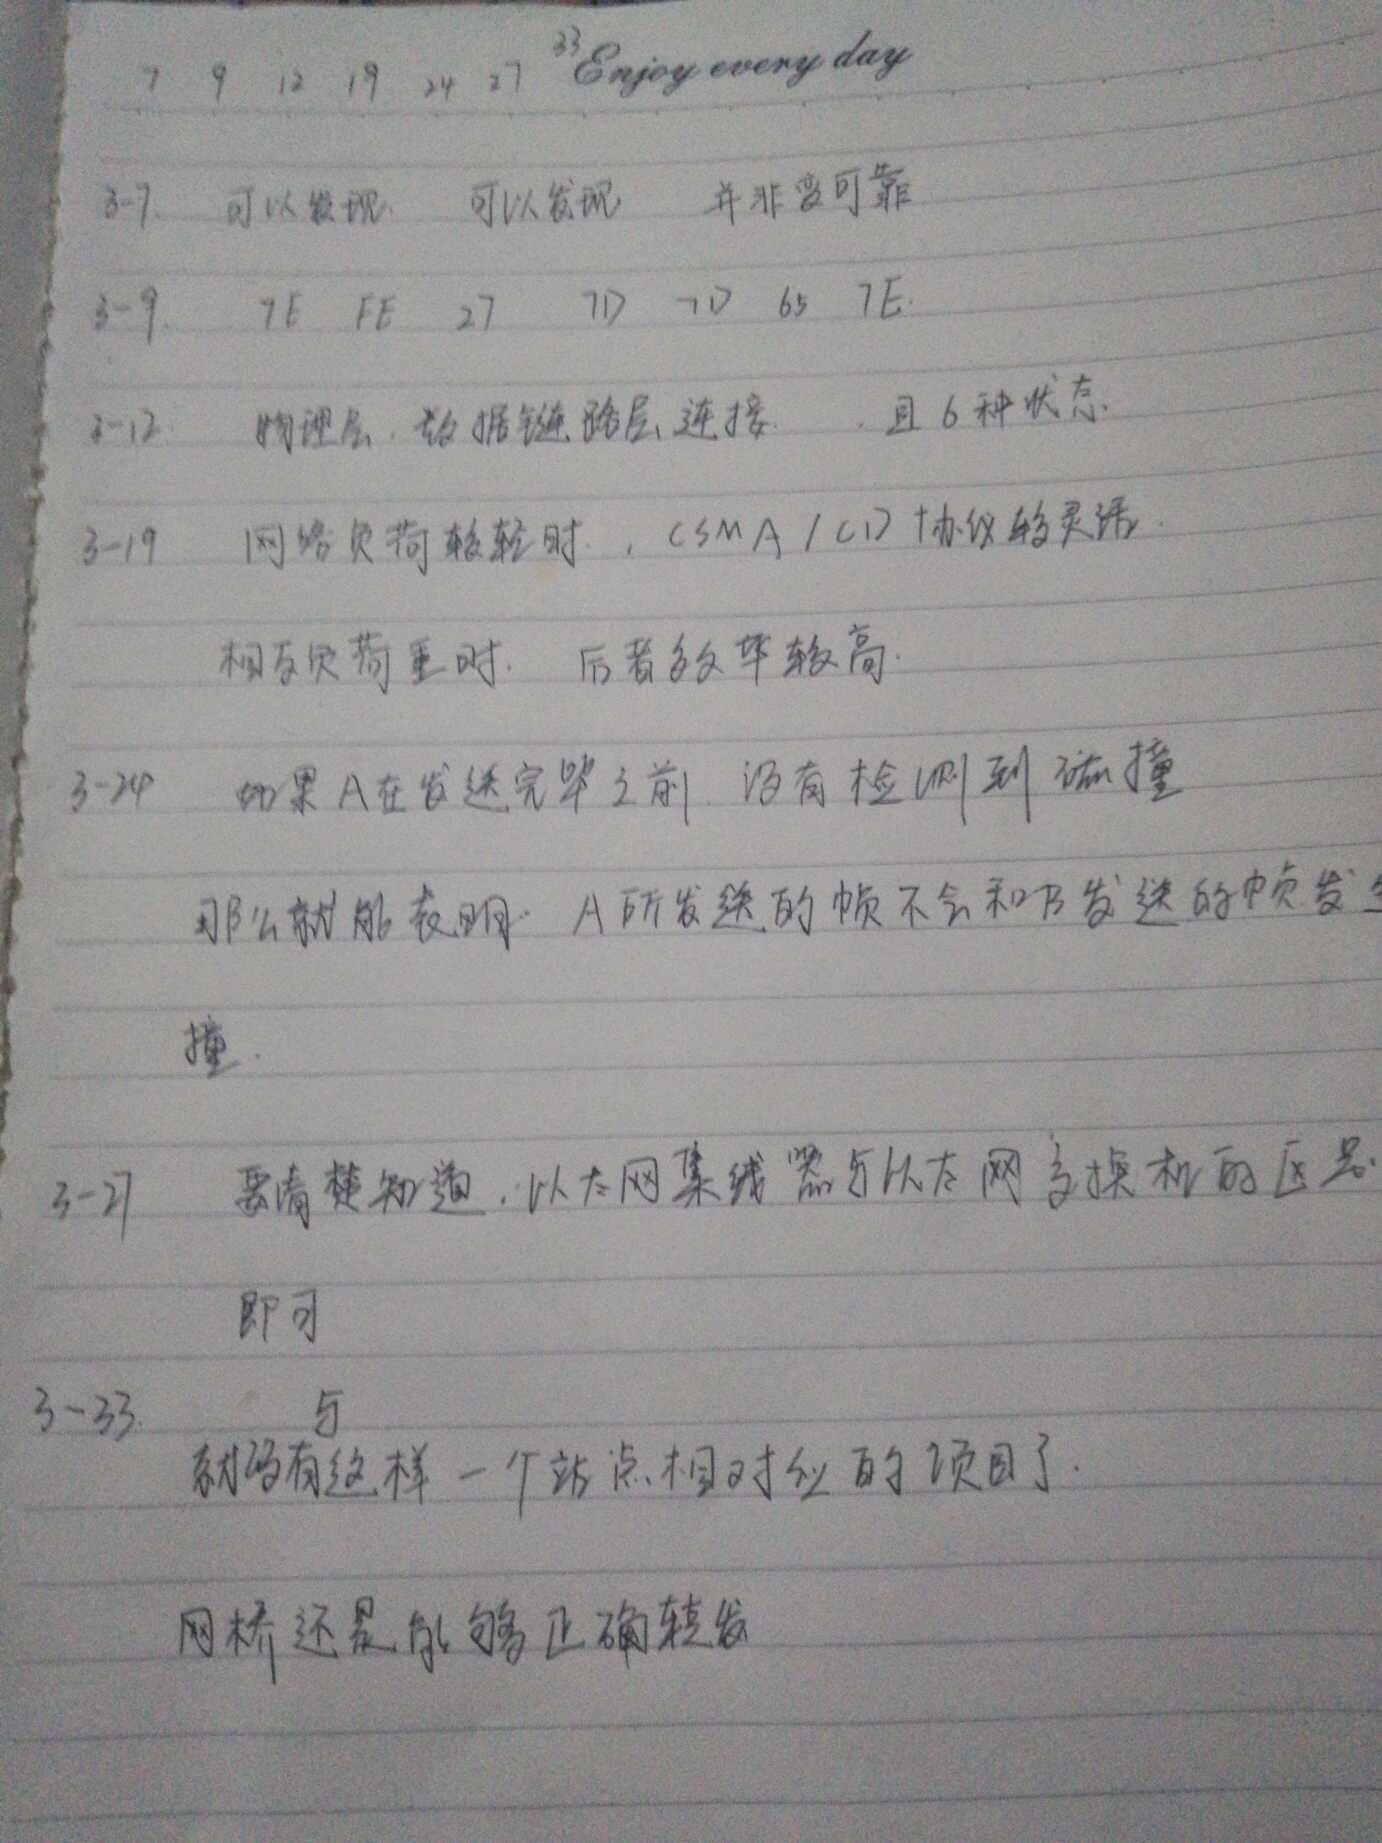 33 Enjoy every day
7 9 12 19 24 27
3-7. 可以发现. 可以发现 并非变可靠
3-9. 7E FE 27 7D 7D 65 7E.
3-12. 物理层. 数据链路层连接. . 且6种状态.
3-19 网络负荷较轻时., CSMA/CD协议较灵活.
相反负荷重时. 后者效率较高.
3-24 如果A在发送完毕之前. 没有检测到碰撞
那么就能表明. A所发送的帧不会和B发送的帧发生
撞.
3-27 要清楚知道, 以太网集线器与以太网交换机的区别.
即可
3-33. 与
就没有这样一个站点相对应的项目了.
网桥还是能够正确转发